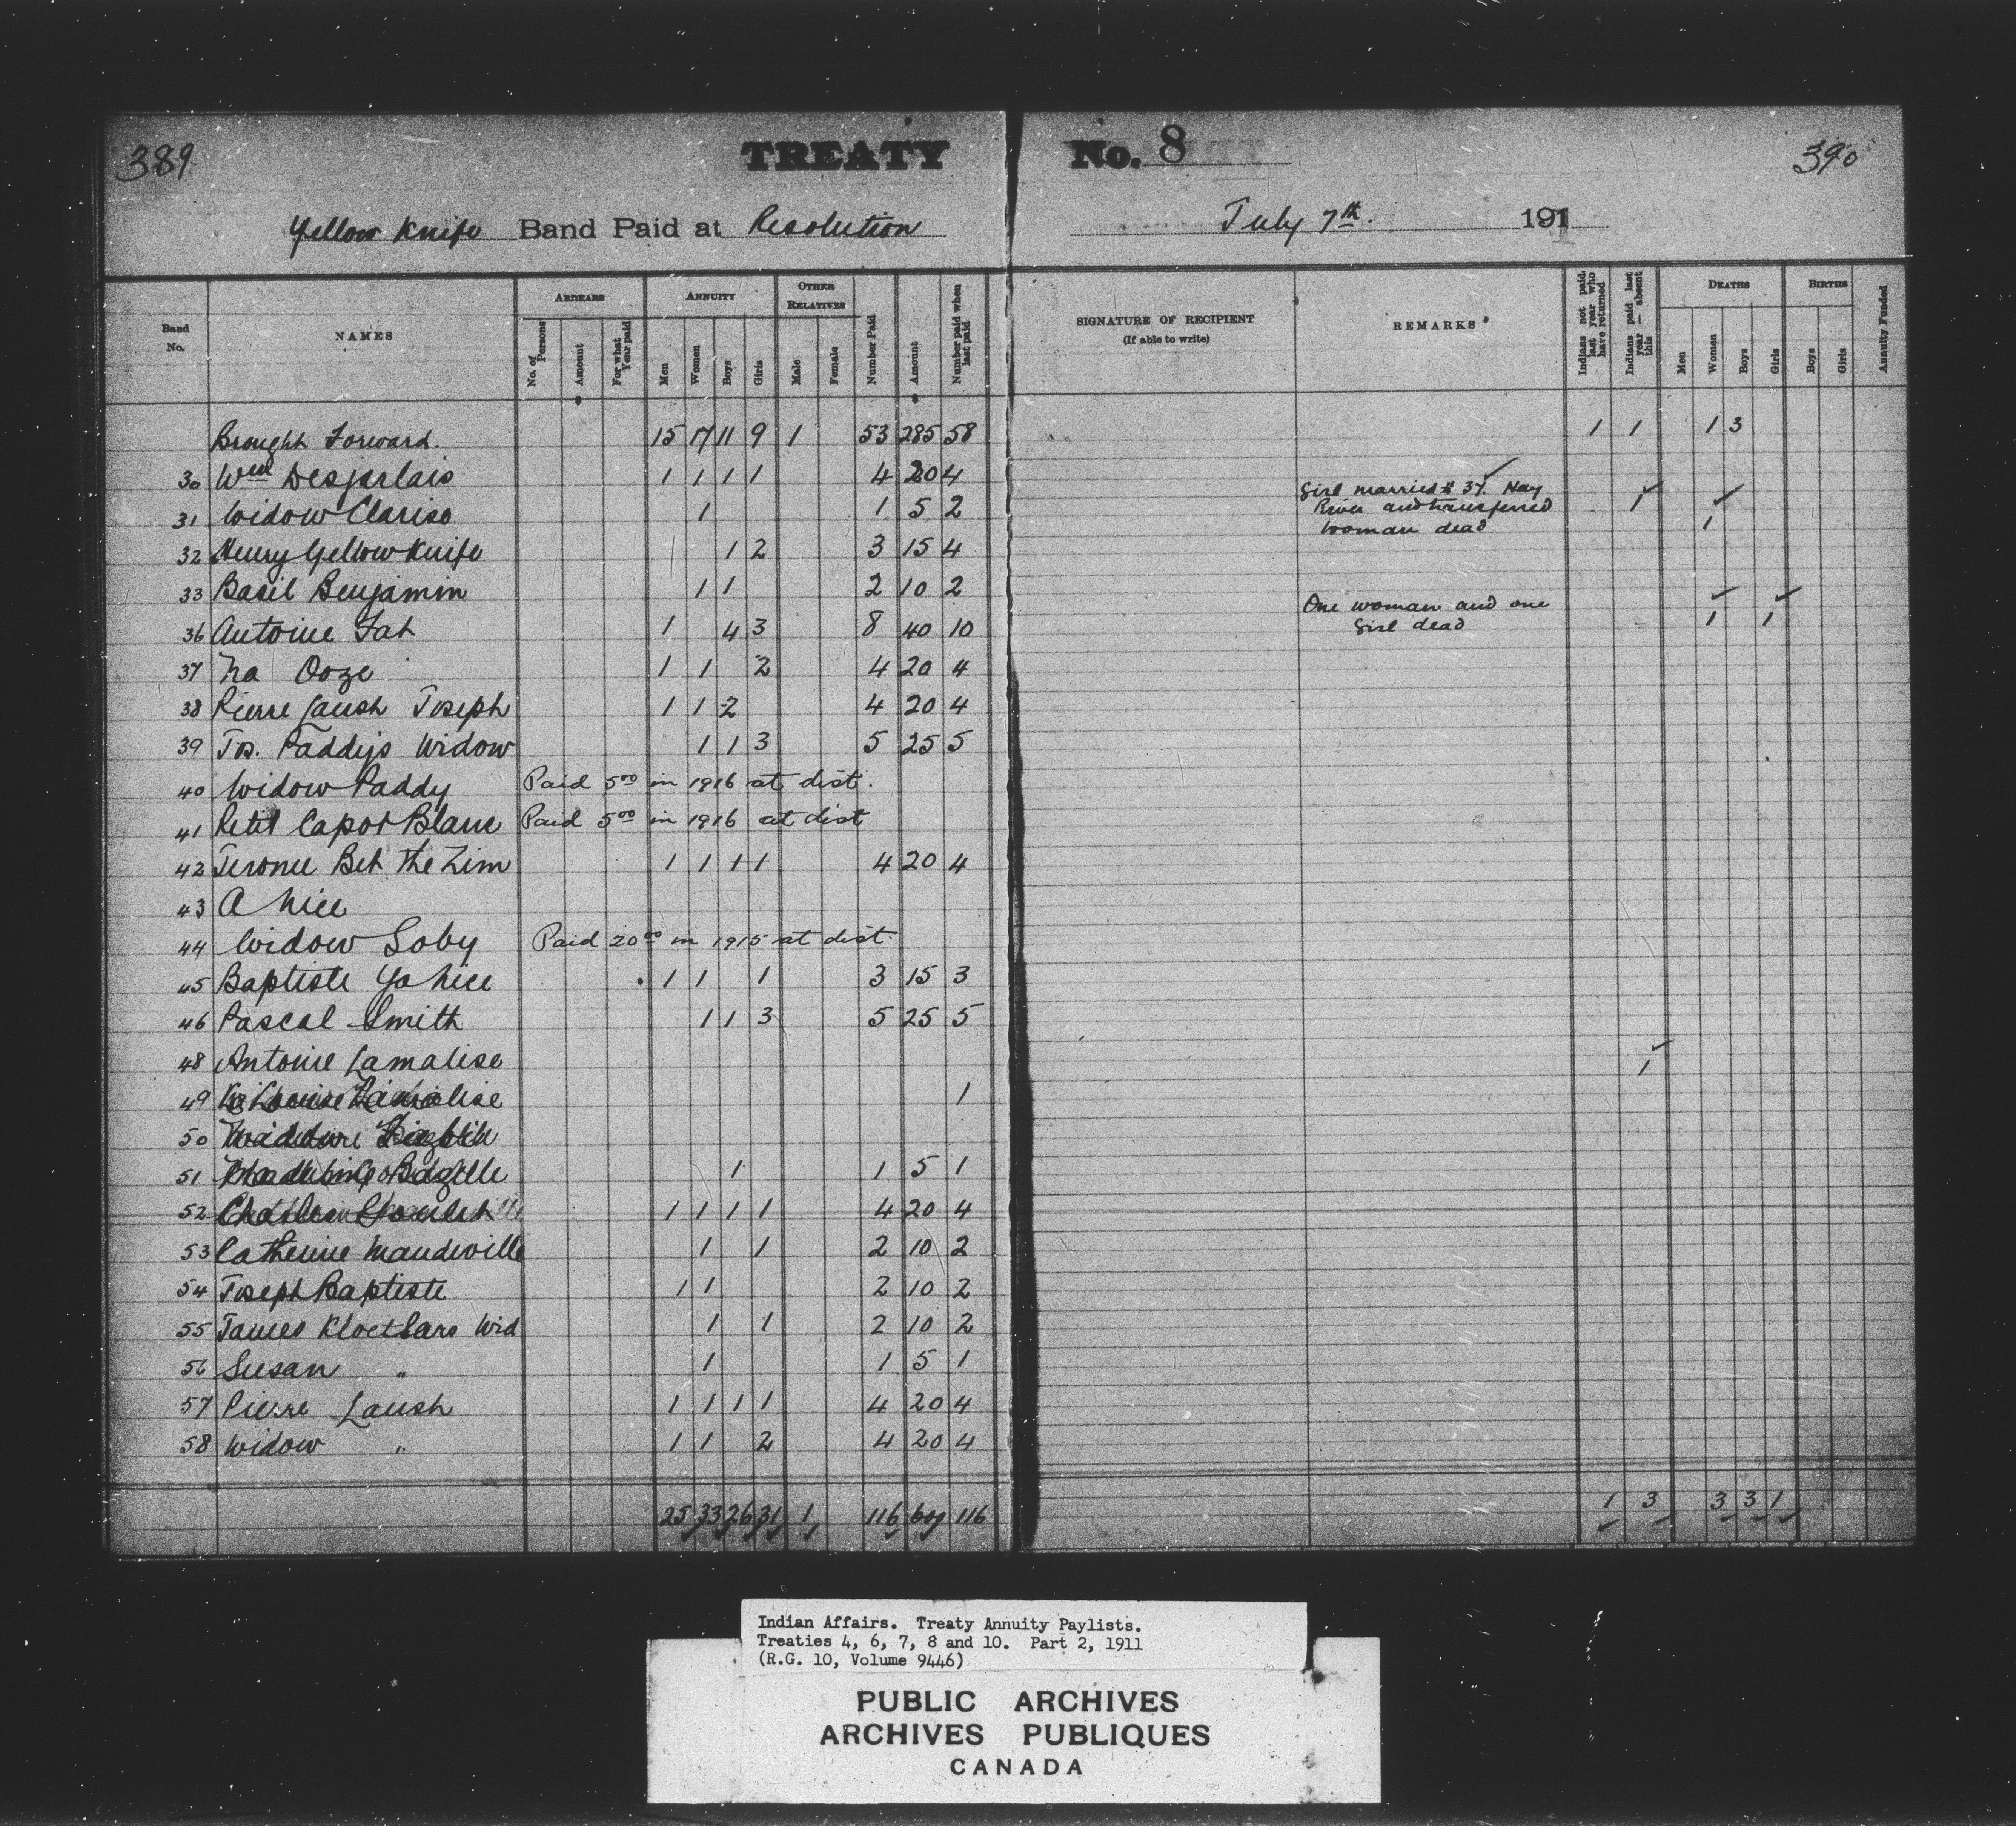 389
TREATY No. 8
390
Yellow Knife Band Paid at Resolution July 7th. 191
Band No.
NAMES
ARREARS
No. of Persons
Amount
For what Year paid
ANNUITY
Men
Women
Boys
Girls
OTHER RELATIVES
Male
Female
Number Paid
Amount
Number paid when last paid
SIGNATURE OF RECIPIENT
(If able to write)
REMARKS
Indians not paid last year who have returned
Indians paid last year — absent this
DEATHS
Men
Women
Boys
Girls
BIRTHS
Boys
Girls
Annuity Funded
Brought Forward. 15 17 11 9 1 53 285 58 1 1 1 3
30 Wm Desjarlais 1 1 1 1 4 20 4
31 Widow Clarise 1 1 5 2 Girl married # 37. Hay River and transferred 1
32 Henry Yellow Knife 1 2 3 15 4 Woman dead 1
33 Basil Benjamin 1 1 2 10 2
36 Antoine Fat 1 4 3 8 40 10 One woman and one girl dead 1 1
37 Na Ooze 1 1 2 4 20 4
38 Pierre Laush Joseph 1 1 2 4 20 4
39 Jos. Paddys Widow 1 1 3 5 25 5
40 Widow Paddy Paid 5 00 in 1916 at dist.
41 Petit Capot Blanc Paid 5 00 in 1916 at dist
42 Jerome Bet The Zim 1 1 1 1 4 20 4
43 A hice
44 Widow Soby Paid 20 00 in 1915 at dist.
45 Baptiste Ya hice 1 1 1 3 15 3
46 Pascal Smith 1 1 3 5 25 5
48 Antoine Lamalise 1
49 1
50
51 1 1 5 1
52 1 1 1 1 4 20 4
53 Catherine Mandeville 1 1 2 10 2
54 Joseph Baptiste 1 1 2 10 2
55 James Kloetsars Wid 1 1 2 10 2
56 Susan " 1 1 5 1
57 Pierre Laush 1 1 1 1 4 20 4
58 Widow " 1 1 2 4 20 4
25 33 26 31 1 116 116 1 3 3 3 1
Indian Affairs. Treaty Annuity Paylists.
Treaties 4, 6, 7, 8 and 10. Part 2, 1911
(R.G. 10, Volume 9446)
PUBLIC ARCHIVES
ARCHIVES PUBLIQUES
CANADA